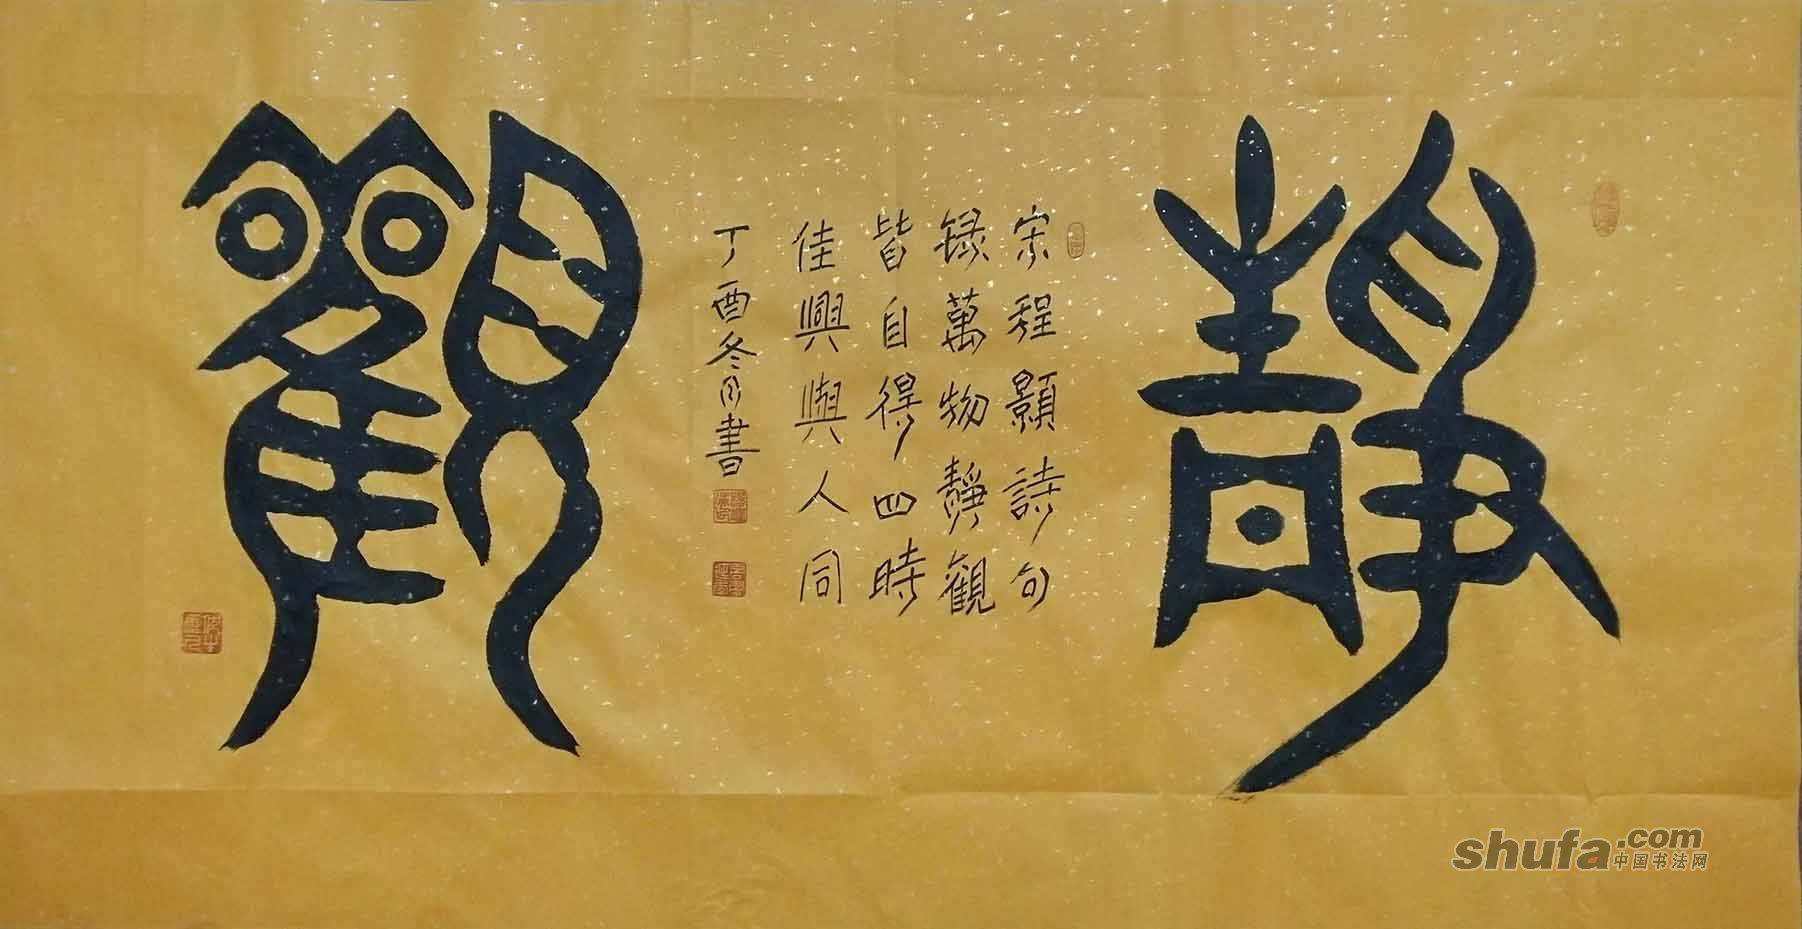 靜觀
宗程顥詩句
録萬物靜觀
皆自得四時
佳興與人同
丁酉冬月書
shufa.com
中国书法网